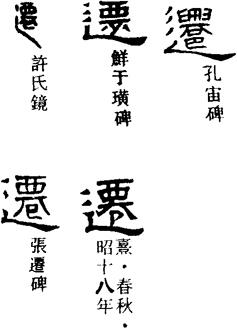 遷
許氏鏡
遷
鮮于璜碑
遷
孔宙碑
遷
張遷碑
遷
熹·春秋·
昭十八年